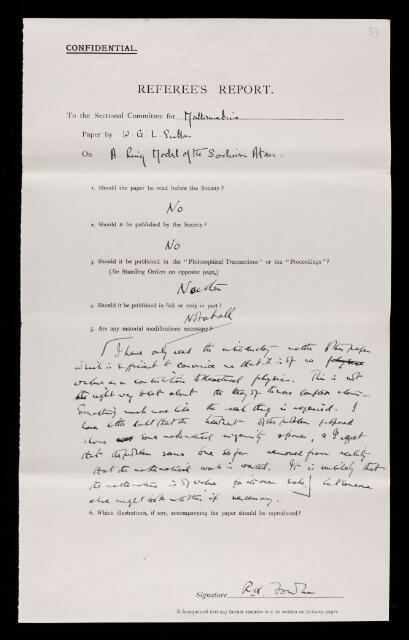 83
CONFIDENTIAL.
REFEREE'S REPORT.
To the Sectional Committee for Mathematics
Paper by W. G. L. Sutton
On A Ring Model of the Sodium Atom.
1. Should the paper be read before the Society?
No
2. Should it be published by the Society?
No
3. Should it be published in the "Philosophical Transactions" or the "Proceedings"?
(See Standing Orders on opposite page.)
Neither
4. Should it be published in full or only in part?
Not at all
5. Are any material modifications necessary?
I have only read the introductory matter of this paper
which is sufficient to convince me that it is of no physical
value as a contribution to theoretical physics. This is not
the right way to set about the theory of the more complex atoms.
Something much more like the real thing is required. I
have little doubt that the treatment of the problem proposed
shows some mathematical ingenuity & power, & I regret
that the problem seems to me so far removed from reality
that the mathematical work is wasted. It is unlikely that
the mathematics is of value for its own sake, but someone
else might look into this if necessary.
6. Which illustrations, if any, accompanying the paper should be reproduced?
Signature R. H. Fowler
It is requested that any further remarks may be written on foolscap paper.